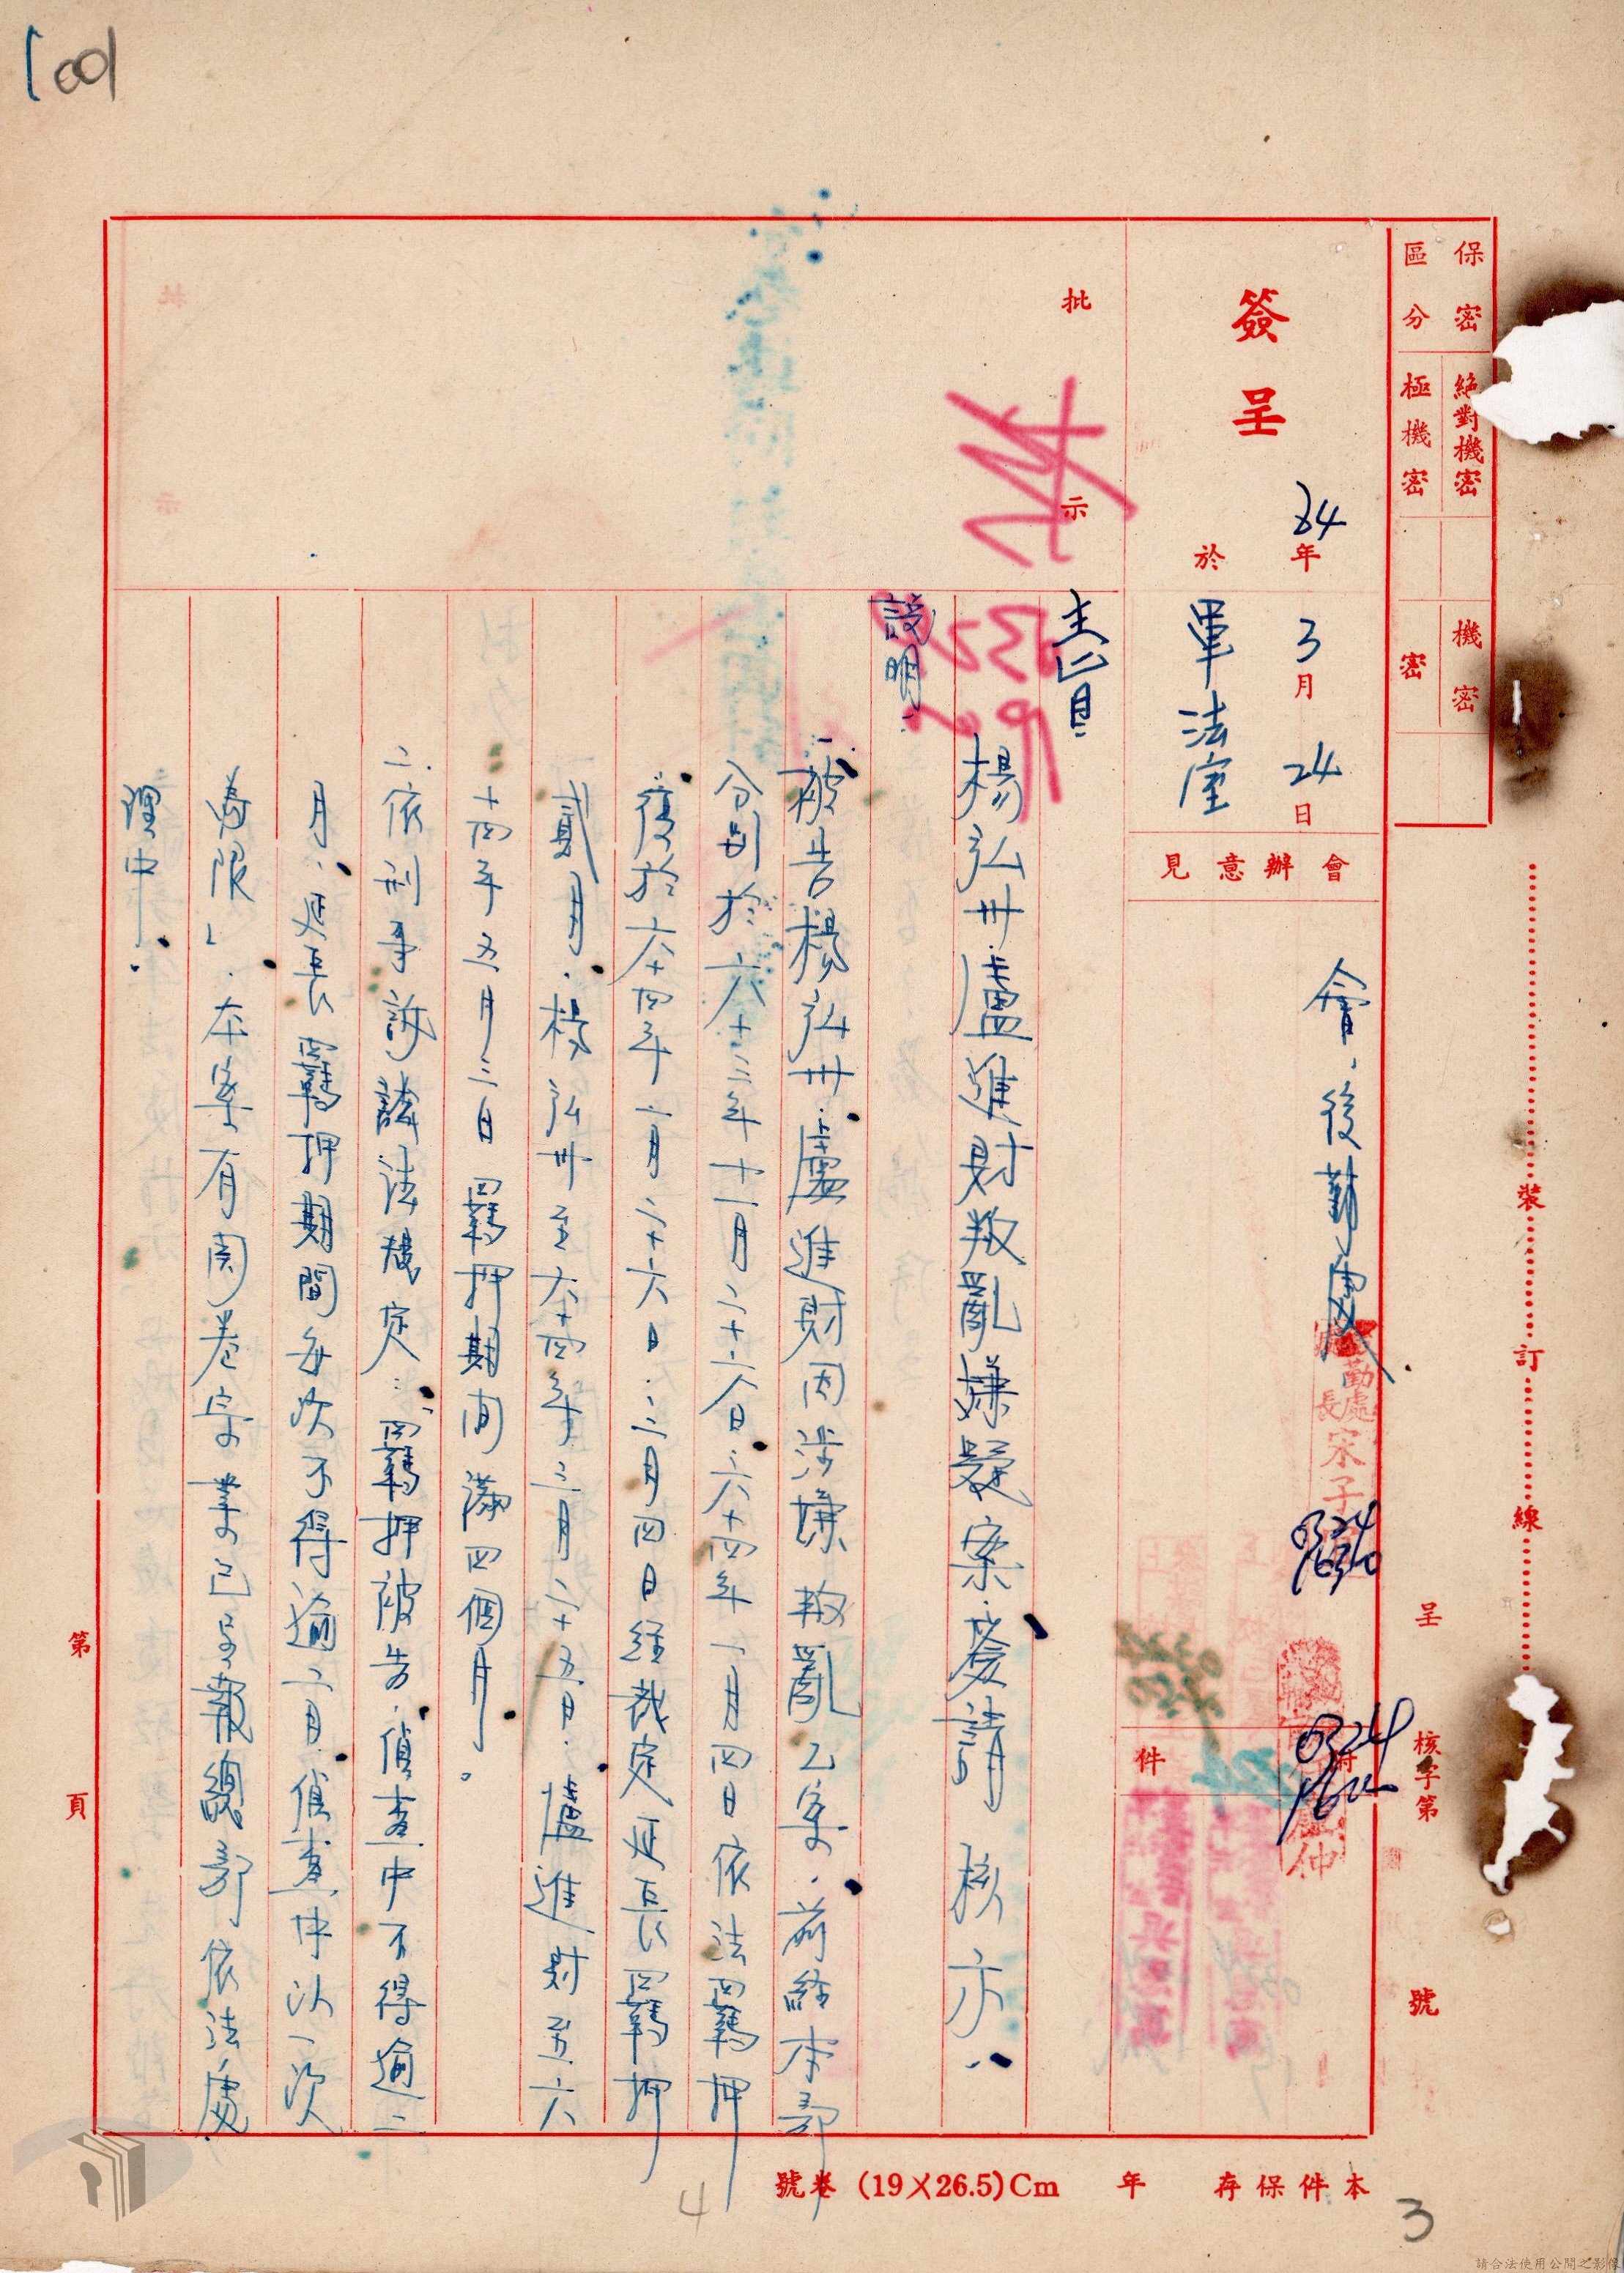 100
保密
區分
絕對機密
極機密
機密
密
簽呈
64年3月24日
於軍法室
會辦意見
會:後勤處
勤處
長宋子
0324
1630
0324
仲
附
件
批示
主旨:
楊弘卅、盧進財叛亂嫌疑案,簽請 核示。
說明:
一、被告楊弘卅、盧進財因涉嫌叛亂乙案,前經本部
分別於六十三年十一月二十六日、六十四年一月四日依法羈押
復於六十四年二月二十六日、三月四日經裁定延長羈押
貳月,楊弘卅至六十四年三月二十五日,盧進財至六
十四年五月三日羈押期間滿四個月。
二、依刑事訴訟法規定:「羈押被告,偵查中不得逾二
月,延長羈押期間每次不得逾二月,偵查中以一次
為限」,本案有關卷宗業已呈報總部依法處
理中。
裝訂線
呈
核字第 號
第 頁
本件保存 年
(19×26.5)Cm
卷號
4
3
請合法使用公開之影像